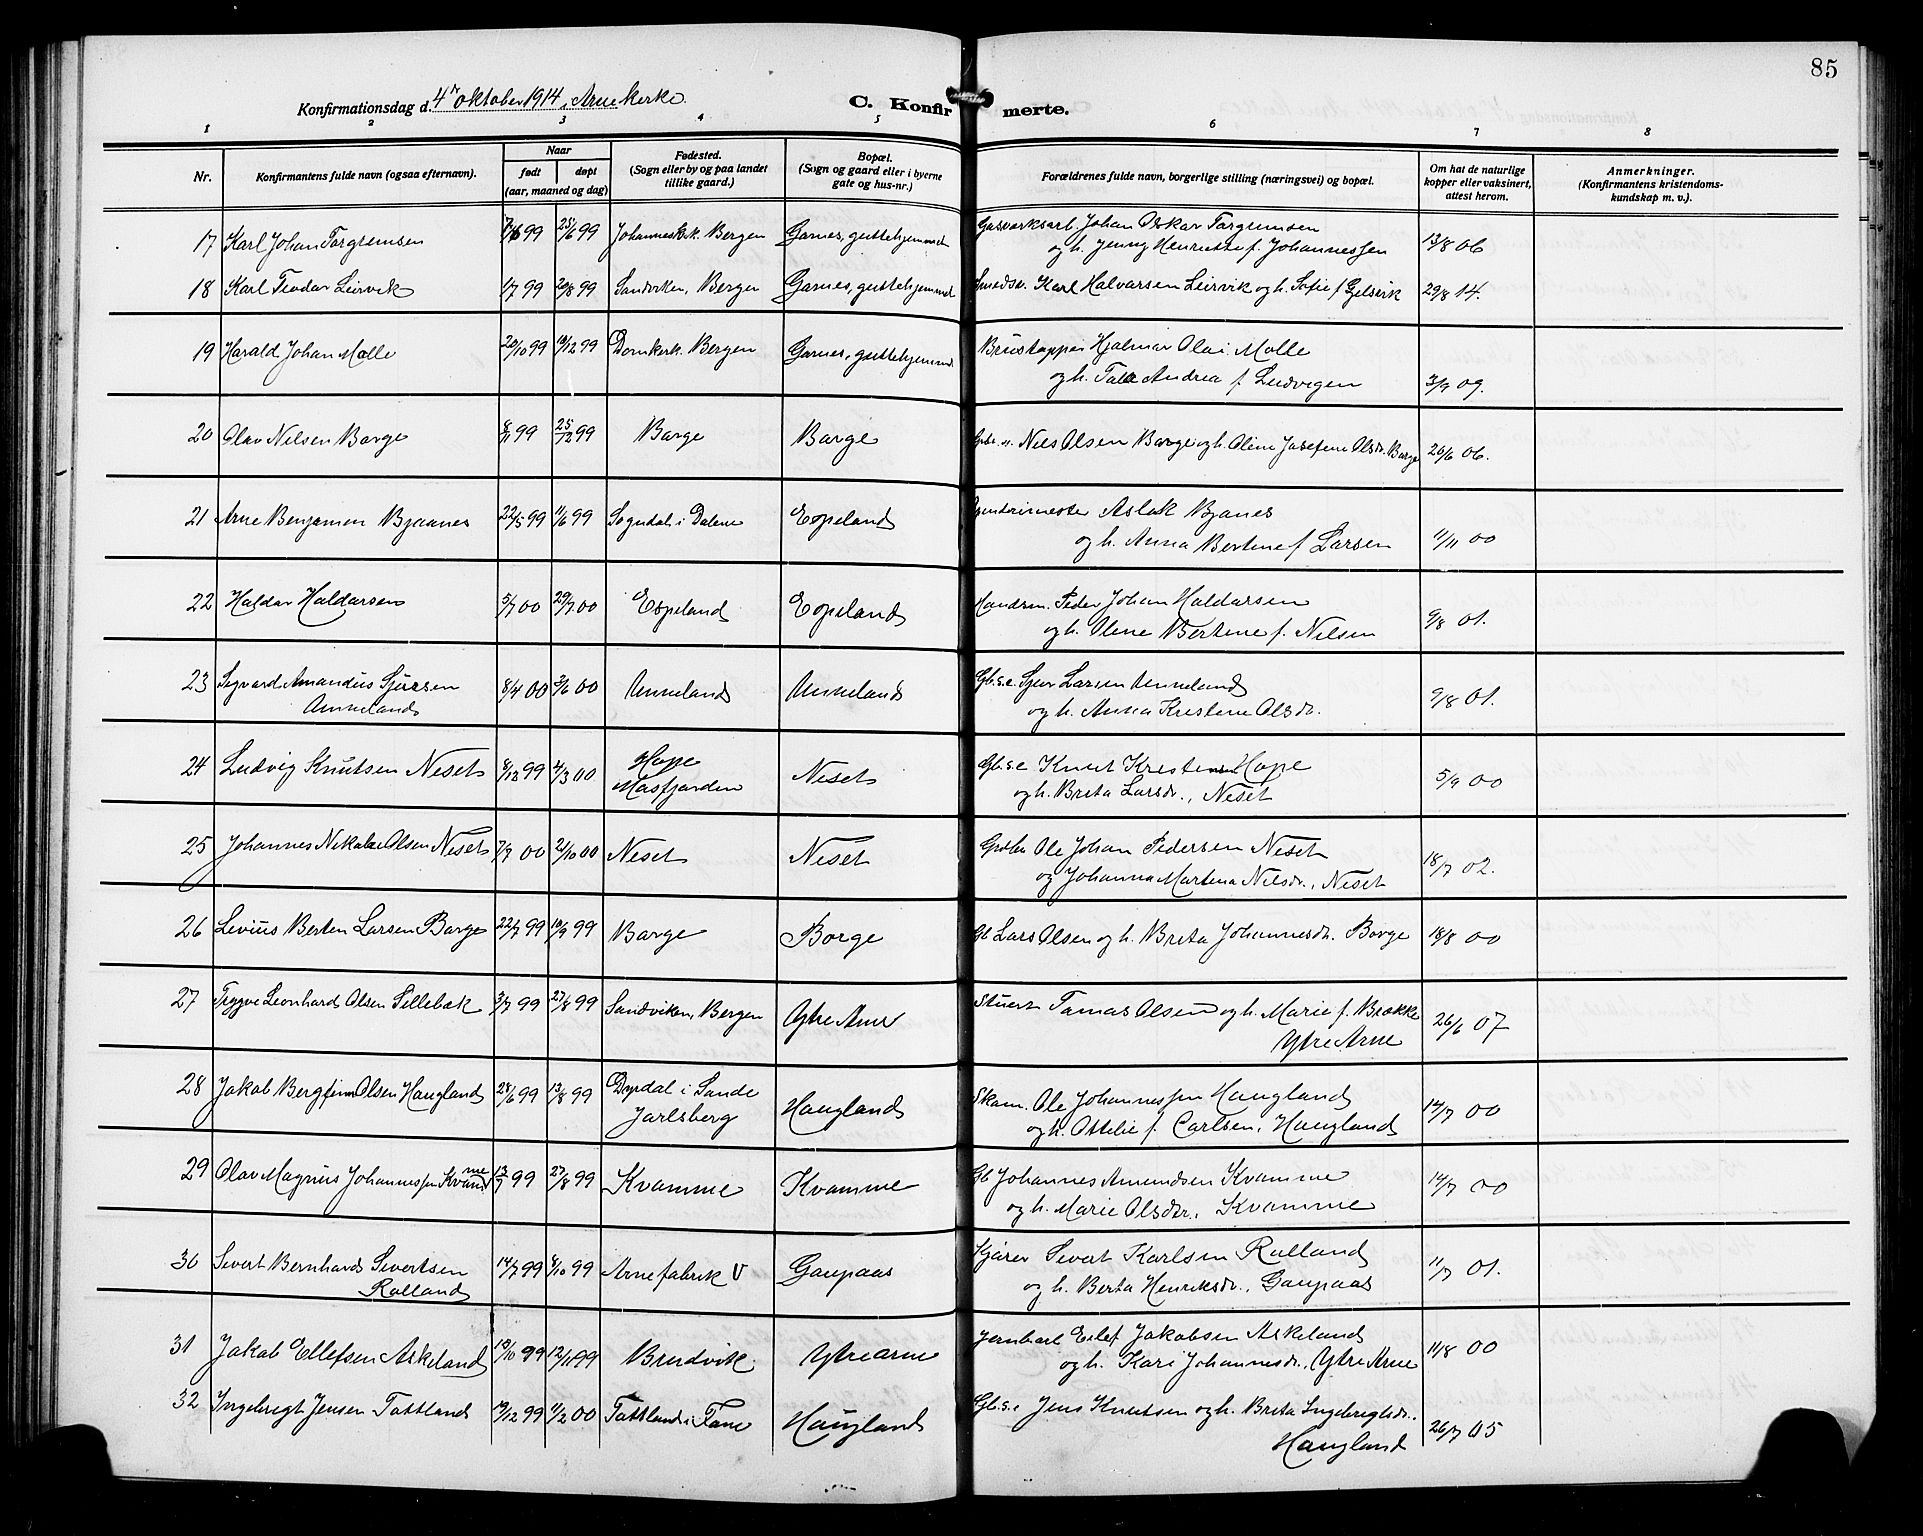 85
Konfirmationsdag d. 4 oktober 1914 i Arne kirke.
C. Konfirmerte.
1 2 3 4 5 6 7 8
Nr.
Konfirmantens fulde navn (ogsaa efternavn).
Naar
født døpt
(aar, maaned og dag)
Fødested.
(Sogn eller by og paa landet
tillike gaard.)
Bopæl.
(Sogn og gaard eller i byerne
gate og hus-nr.)
Forældrenes fulde navn, borgerlige stilling (næringsvei) og bopæl.
Om hat de naturlige
kopper eller vaksinert,
attest herom.
Anmerkninger.
(Konfirmantens kristendoms-
kundskap m. v.).
17 Karl Johan Torgersen 99 25/6 99 Johannesk. Bergen Garnes, guttehjemmet Gasverksarb. Johan Oskar Torgersen
og h. Jenny Henriette f. Johannessen 13/8 06
18 Karl Teodor Leirvik 1/7 99 20/8 99 Sandviken, Bergen Garnes, guttehjemmet Smedsv. Karl Halvarsen Leirvik og h. Sofie f. Gjelsvik 29/8 14.
19 Harald Johan Molle 20/10 99 10/12 99 Domkirk. Bergen Garnes, guttehjemmet Brustapper Hjalmar Olai Molle
og h. Andrea f. Ludvigsen 3/9 09.
20 Olav Nilsen Borge 8/11 99 25/12 99 Borge Borge Nils Olsen Borge og h. Oline Josefine Olsdr. Borge 26/6 06.
21 Arne Benjamin Bjaanes 22/5 99 11/6 99 Sogndal i Dalene Espeland Aslak Bjanes
og h. Anna Bertine f. Larsen 11/11 00
22 Haldor Haldorsen 5/7 00 29/7 00 Espeland Espeland Handesm. Peder Johan Haldorsen
og h. Oline Bertine f. Nilsen 9/8 01.
23 Sigvard Amandus Sjursen
Anneland 8/4 00 3/6 00 Anneland Anneland Gb.s.e. Sjur Larsen Anneland
og h. Anna Kristine Olsdr. 9/8 01.
24 Ludvig Knutsen Neset 8/12 99 4/3 00 Hope
Masfjorden Neset Gb.s.e Knut Kristensen Hope
og h. Brita Larsdr., Neset 5/9 00
25 Johannes Nikolai Olsen Neset 7/9 00 21/10 00 Neset Neset Ole Johan Pedersen Neset
og Johanna Martina Nilsdr., Neset 18/7 02.
26 Levius Berten Larsen Borge 22/7 99 10/9 99 Borge Borge Gb Lars Olsen og h. Brita Johannesdr. Borge 18/8 00
27 Trygve Leonhard Olsen Sellebæk 3/7 99 27/8 99 Sandviken, Bergen Ytre Arne Stuert Tomas Olsen og h. Marie f. Brække
Ytre Arne 26/6 07
28 Jakob Bergfinn Olsen Haugland 24/6 99 13/8 99 Dyrdal i Sande
Jarlsberg Haugland Skom. Ole Johannessen Haugland
og h. Ottelie f. Carlsen, Haugland 14/7 00
29 Olav Magnus Johannessen Kvamme 13/7 99 27/8 99 Kvamme Kvamme Gb Johannes Amundsen Kvamme
og h. Marie Olsdtr. Kvamme 14/7 00
30 Sivert Bernhard Sivertsen
Rolland 14/7 99 8/10 99 Arne fabrik V Gaupaas Kjører Sivert Karlsen Rolland
og h. Berta Henriksdr., Gaupaas 11/7 01.
31 Jakob Ellefsen Askeland 10/10 99 12/11 99 Bruvik Ytre Arne Jernbarb Ellef Jakobsen Askeland
og h. Kari Johannesdr., Ytre Arne 11/8 00
32 Ingebrigt Jensen Tottland 19/12 99 11/2 00 Tottland i Fane Haugland Gb.s.e Jens Knutsen og h. Brita Ingebrigtsdr.
Haugland 26/7 05